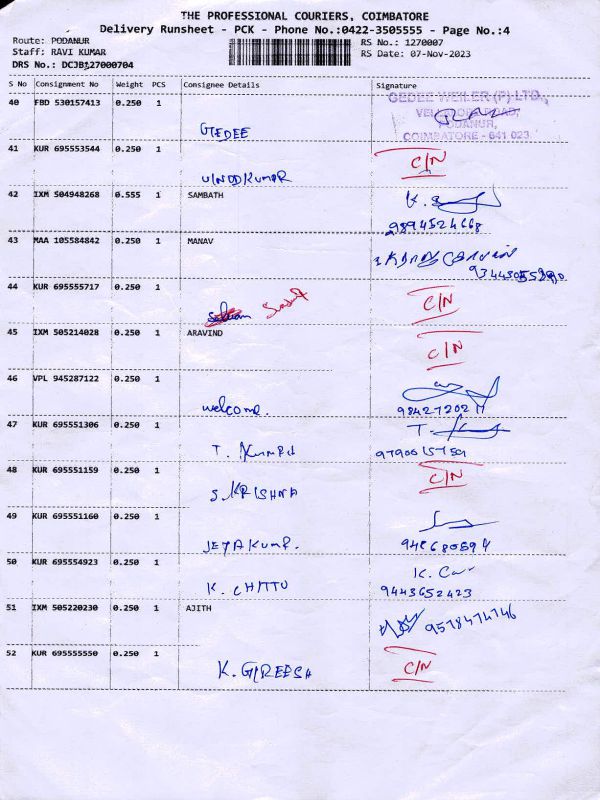 THE PROFESSIONAL COURIERS, COIMBATORE
Delivery Runsheet - PCK - Phone No.:0422-3505555 - Page No.:4
Route: PODANUR RS No.: 1270007
Staff: RAVI KUMAR RS Date: 07-Nov-2023
DRS No.: DCJB127000704
S No Consignment No Weight PCS Consignee Details Signature
40 FBD 530157413 0.250 1 GEDEE GEDEE WEILER (P) LTD.,
PODANUR,
COIMBATORE - 641 023
41 KUR 695553544 0.250 1 C/N
VINODKUMAR
42 IXM 504948268 0.555 1 SAMBATH
9894524668
43 MAA 105584842 0.250 1 MANAV
44 KUR 695555717 0.250 1 C/N
45 IXM 505214028 0.250 1 ARAVIND C/N
46 VPL 945287122 0.250 1
welcome.
47 KUR 695551306 0.250 1
T. KUMAR
48 KUR 695551159 0.250 1 C/N
S. KRISHNA
49 KUR 695551160 0.250 1
JEYAKUMAR.
50 KUR 695554923 0.250 1
K. CHITTU 9443652423
51 IXM 505220230 0.250 1 AJITH
9578474746
52 KUR 695555550 0.250 1 C/N
K. GIREESH